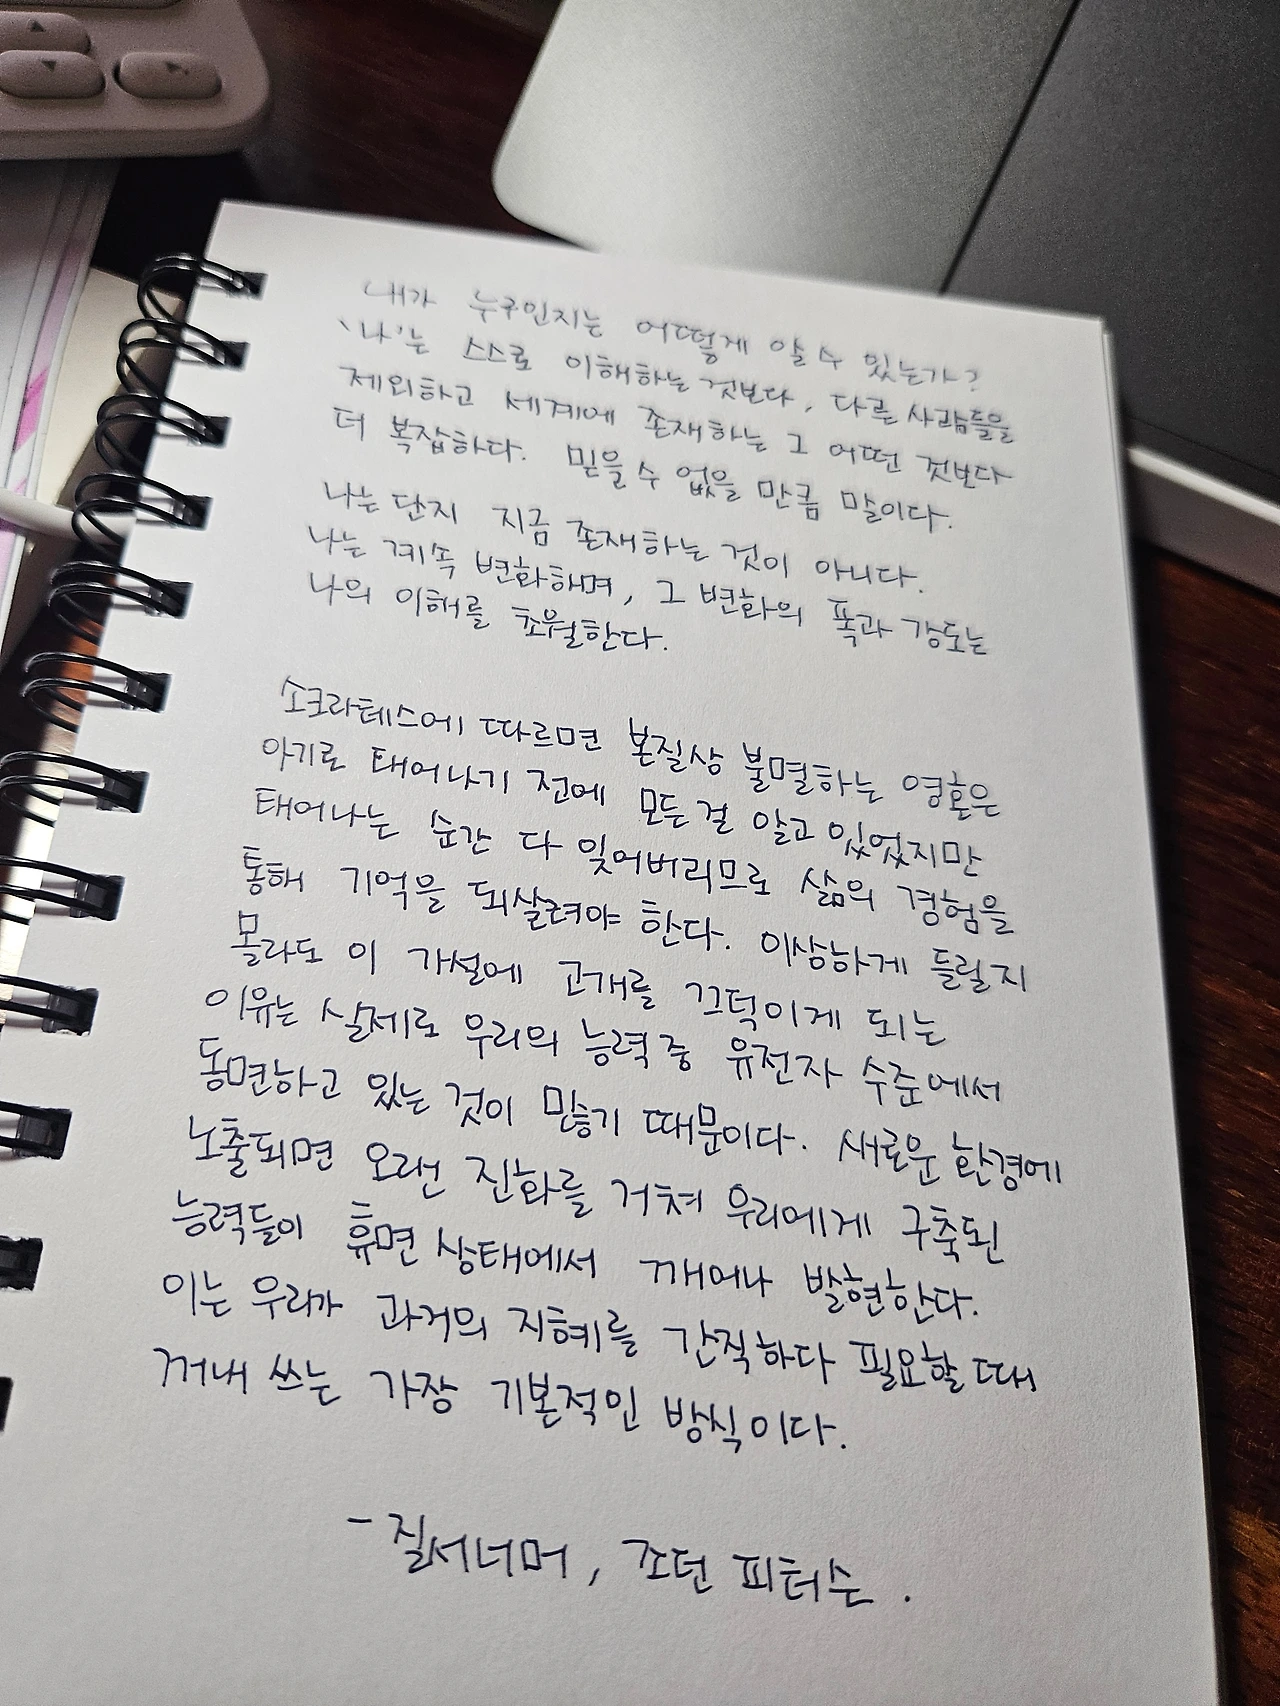 내가 누구인지는 어떻게 알 수 있는가?
'나'는 스스로 이해하는 것보다, 다른 사람들을
제외하고 세계에 존재하는 그 어떤 것보다
더 복잡하다. 믿을 수 없을 만큼 말이다.
나는 단지 지금 존재하는 것이 아니다.
나는 계속 변화하며, 그 변화의 폭과 강도는
나의 이해를 초월한다.
소크라테스에 따르면 본질상 불멸하는 영혼은
아기로 태어나기 전에 모든 걸 알고 있었지만
태어나는 순간 다 잊어버리므로 삶의 경험을
통해 기억을 되살려야 한다. 이상하게 들릴지
몰라도 이 가설에 고개를 끄덕이게 되는
이유는 실제로 우리의 능력 중 유전자 수준에서
동면하고 있는 것이 많기 때문이다. 새로운 환경에
노출되면 오랜 진화를 거쳐 우리에게 구축된
능력들이 휴면 상태에서 깨어나 발현한다.
이는 우리가 과거의 지혜를 간직하다 필요할 때
꺼내 쓰는 가장 기본적인 방식이다.
- 질서너머, 조던 피터슨.